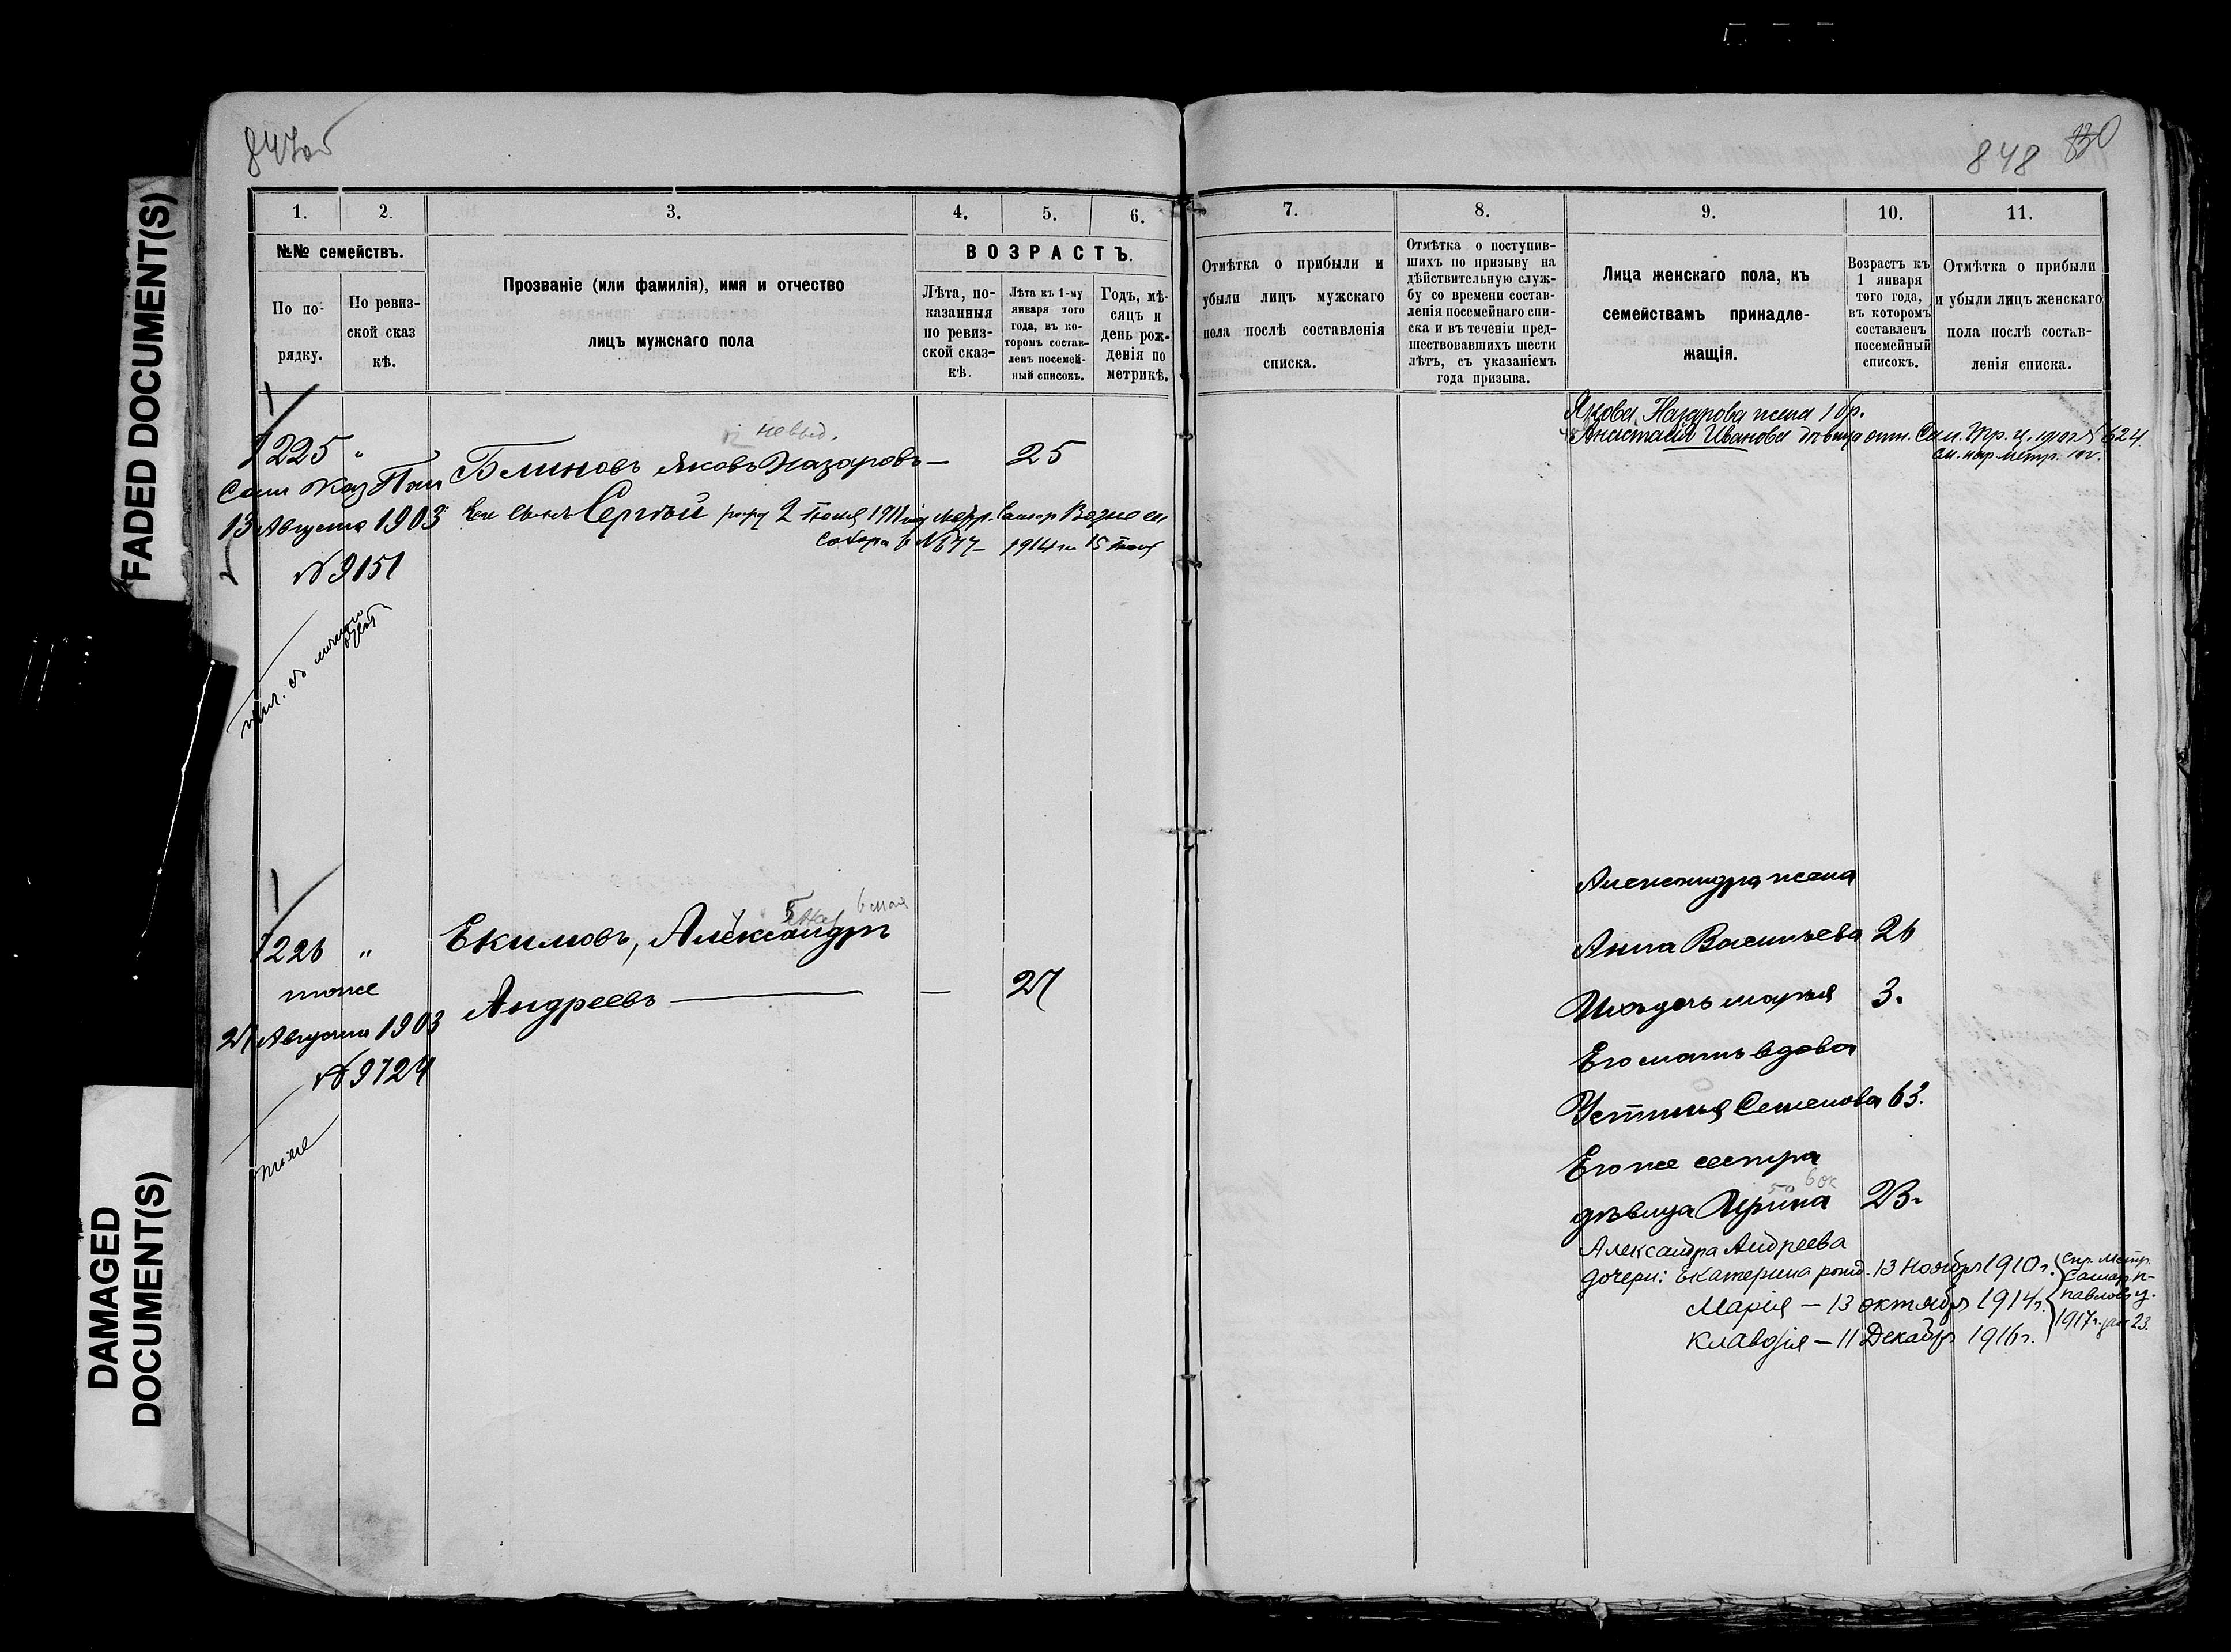 FADED DOCUMENT(S)
DAMAGED
DOCUMENT(S)
847об
1.
2.
3.
4.
5.
6.
№№ семействъ.
По по-
рядку.
По ревиз-
ской сказ
кѣ.
Прозваніе (или фамилія), имя и отчество
лицъ мужскаго пола
ВОЗРАСТЪ.
Лѣта, по-
казанныя
по ревиз-
ской сказ-
кѣ.
Лѣта къ 1-му
января того
года, въ ко-
торомъ состав-
ленъ посемей-
ный списокъ.
Годъ, мѣ-
сяцъ и
день рож-
денія по
метрикѣ.
1225 "
Сам Каз Пал
13 Августа 1903
№ 9151
Блиновъ Яковъ Назаровъ — 25
Сергѣй 2 1911 Самар Вознесен
собора № 77 — 1914 15
1226 "
тоже
27 Августа 1903
№ 9724
тоже
Екимовъ, Александръ
Андреевъ — — 27
848 830
7.
8.
9.
10.
11.
Отмѣтка о прибыли и
убыли лицъ мужскаго
пола послѣ составленія
списка.
Отмѣтка о поступив-
шихъ по призыву на
дѣйствительную служ-
бу со времени состав-
ленія посемейнаго спи-
ска и въ теченіи пред-
шествовавшихъ шести
лѣтъ, съ указаніемъ
года призыва.
Лица женскаго пола, къ
семействамъ принадле-
жащія.
Возрастъ къ
1 января
того года,
въ которомъ
составленъ
посемейный
списокъ.
Отмѣтка о прибыли
и убыли лицъ женскаго
пола послѣ состав-
ленія списка.
Якова Назарова жена 1 бр.
Анастасія Иванова дѣвица Сам. Тр. ц. 624
Александра жена
Анна Васильева 26
Ихъ дочь Марья 3.
Его мать вдова
Устинья Семенова 63.
Его же сестра
дѣвица Ирина 23.
Александра Андреева
дочери: Екатерина рожд. 13 Ноября 1910 г.
Марія — 13 октября 1914 г.
Клавдія — 11 Декабр 1916 г.
Спр. Метр.
Самар. П-
павлов ц.
1917 г. 23.